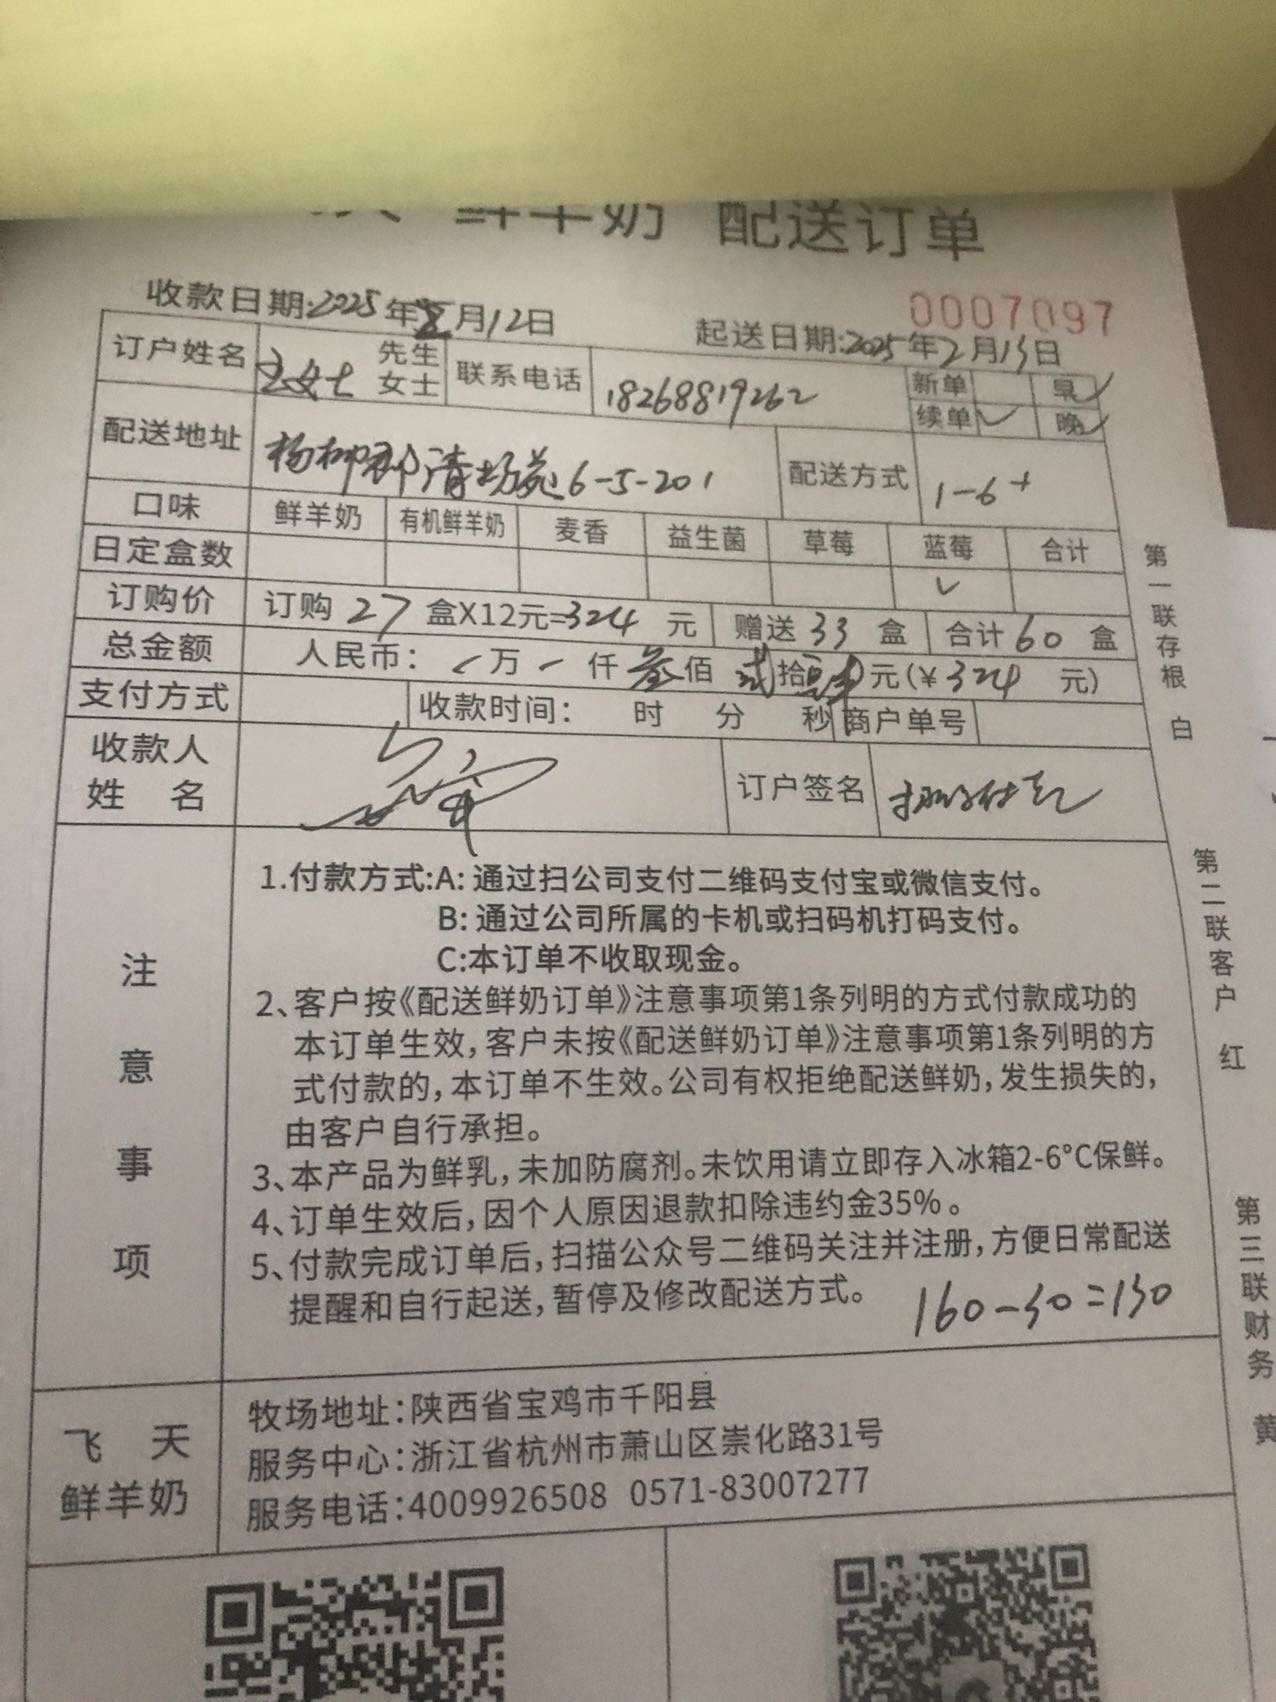 鲜羊奶 配送订单
0007097
收款日期:2025年 月12日
起送日期:2025年2月13日
订户姓名 女士 先生 女士 联系电话 18268819262 新单 早✓
续单✓ 晚✓
配送地址 杨柳郡清 苑6-5-201 配送方式 1-6+
口味 鲜羊奶 有机鲜羊奶 麦香 益生菌 草莓 蓝莓 合计
日定盒数 ✓
订购价 订购 27 盒X12元=324 元 赠送 33 盒 合计 60 盒
总金额 人民币: 万 仟 叁佰 贰拾 元(¥324 元)
支付方式 收款时间: 时 分 秒 商户单号
收款人
姓 名
订户签名
注意事项
1.付款方式:A: 通过扫公司支付二维码支付宝或微信支付。
B: 通过公司所属的卡机或扫码机打码支付。
C:本订单不收取现金。
2、客户按《配送鲜奶订单》注意事项第1条列明的方式付款成功的
本订单生效，客户未按《配送鲜奶订单》注意事项第1条列明的方
式付款的，本订单不生效。公司有权拒绝配送鲜奶，发生损失的，
由客户自行承担。
3、本产品为鲜乳，未加防腐剂。未饮用请立即存入冰箱2-6°C保鲜。
4、订单生效后，因个人原因退款扣除违约金35%。
5、付款完成订单后，扫描公众号二维码关注并注册，方便日常配送
提醒和自行起送，暂停及修改配送方式。
160-30=130
飞 天
鲜羊奶
牧场地址:陕西省宝鸡市千阳县
服务中心:浙江省杭州市萧山区崇化路31号
服务电话:4009926508 0571-83007277
第一联存根 白
第二联客户 红
第三联财务 黄